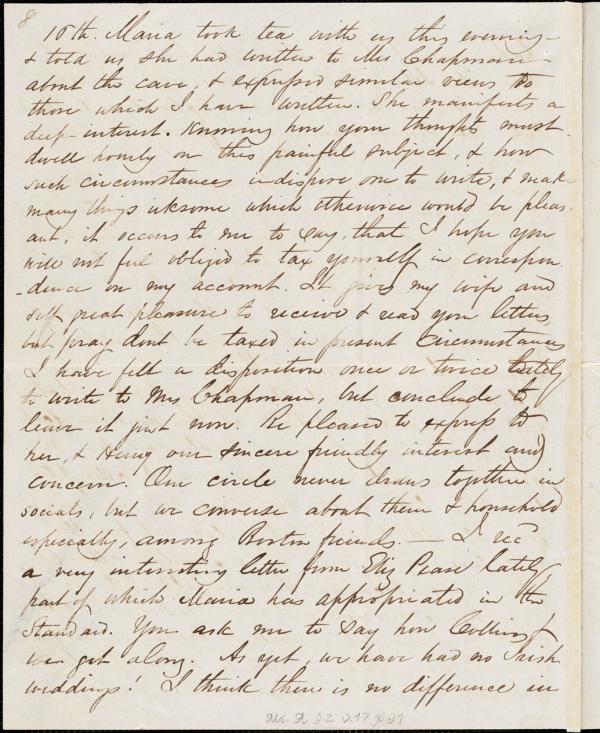 8
10th. Maria took tea with us this evening -
& told us she had written to Mrs Chapman -
about the case, & expressed similar views to
those which I have written. She manifests a
deep interest. Knowing how your thoughts must
dwell hourly on this painful subject, & how
such circumstances indispose one to write, & make
many things irksome which otherwise would be pleas-
ant, it occurs to me to say, that I hope you
will not feel obliged to tax yourself in correspon
-dence on my account. It gives my wife and
self great pleasure to receive & read your letters,
but pray dont be taxed in present circumstances
I have felt a disposition once or twice lately
to write to Mrs Chapman, but conclude to
leave it just now. Be pleased to express to
her, & Henry our sincere friendly interest and
concern. Our circle never draws together in
socials, but we converse about them & household
especially, among Boston friends. — I recd
a very interesting letter from Eliz Pease lately,
part of which Maria has appropriated in the
Standard. You ask me to say how Collins &
we get along. As yet, we have had no Irish
weddings! I think there is no difference in
Ms. A 9.2 v.17 p.91